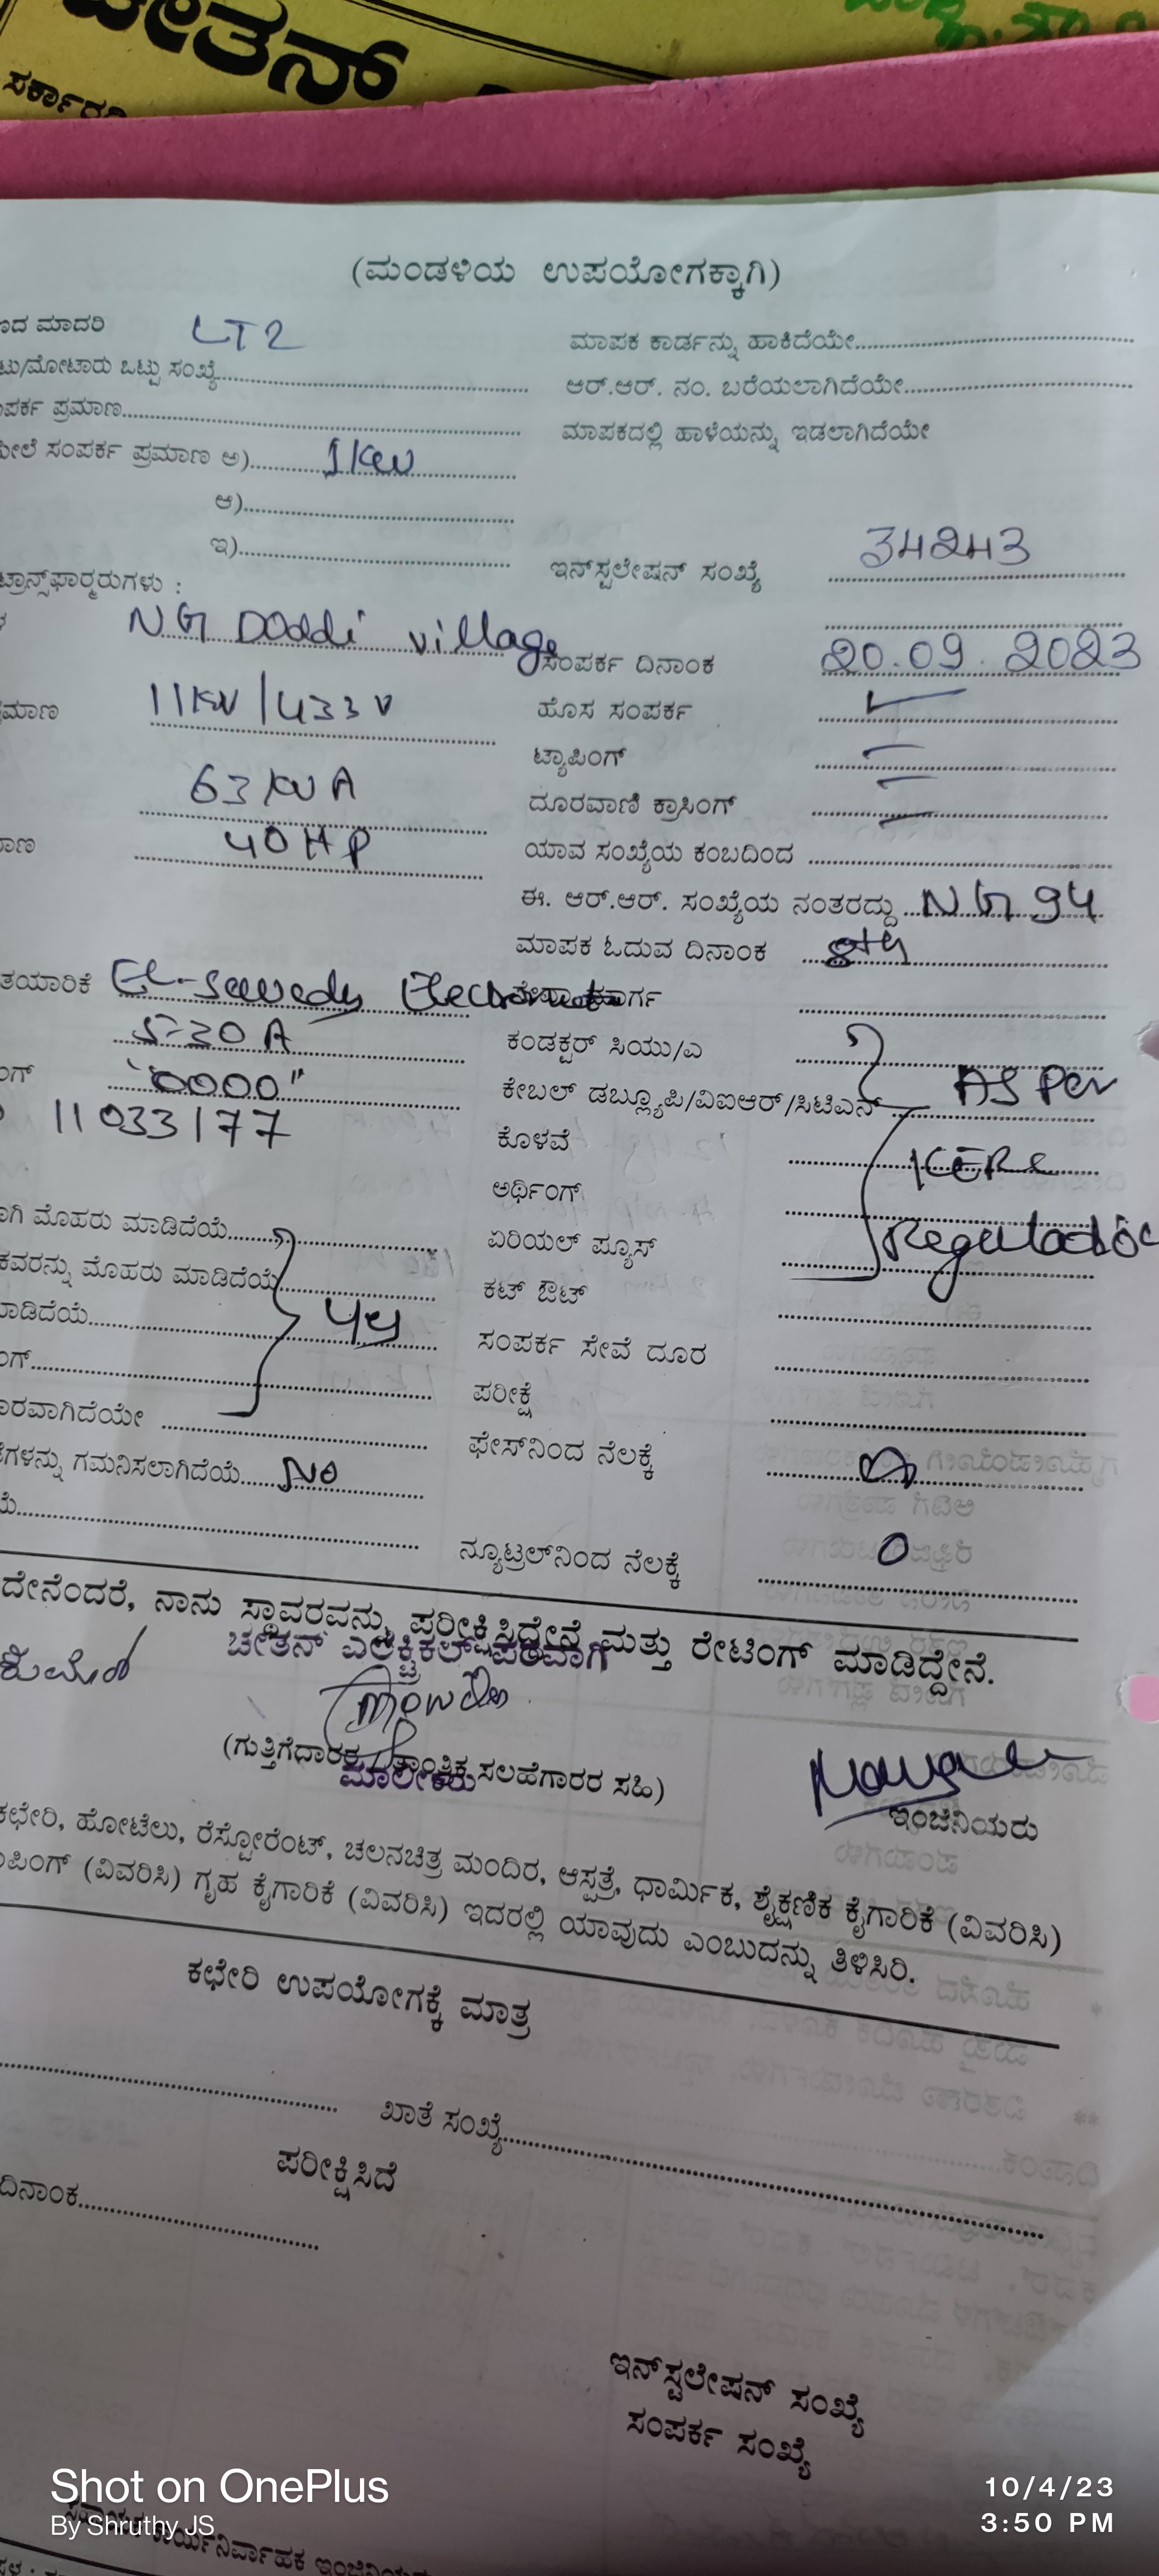 ಚೇತನ್
(ಮಂಡಳಿಯ ಉಪಯೋಗಕ್ಕಾಗಿ)
ಮಾದರಿ LT2
ಮಾಪಕ ಕಾರ್ಡನ್ನು ಹಾಕಿದೆಯೇ
/ಮೋಟಾರು ಒಟ್ಟು ಸಂಖ್ಯೆ
ಆರ್.ಆರ್. ನಂ. ಬರೆಯಲಾಗಿದೆಯೇ
ಪ್ರಮಾಣ
ಮಾಪಕದಲ್ಲಿ ಹಾಳೆಯನ್ನು ಇಡಲಾಗಿದೆಯೇ
ಮೇಲೆ ಸಂಪರ್ಕ ಪ್ರಮಾಣ ಅ) 1 KW
ಆ)
ಇ)
ಇನ್‌ಸ್ಟಲೇಷನ್ ಸಂಖ್ಯೆ 34243
ಟ್ರಾನ್ಸ್‌ಫಾರ್ಮರುಗಳು :
NG Doddi village
ಸಂಪರ್ಕ ದಿನಾಂಕ 20.09.2023
11KV/433V
ಹೊಸ ಸಂಪರ್ಕ ✓
ಟ್ಯಾಪಿಂಗ್
63 KVA
ದೂರವಾಣಿ ಕ್ರಾಸಿಂಗ್
40 HP
ಯಾವ ಸಂಖ್ಯೆಯ ಕಂಬದಿಂದ
ಈ. ಆರ್.ಆರ್. ಸಂಖ್ಯೆಯ ನಂತರದ್ದು NG 94
ಮಾಪಕ ಓದುವ ದಿನಾಂಕ 8th
ತಯಾರಿಕೆ
5-30 A
ಕಂಡಕ್ಟರ್ ಸಿಯು/ಎ
"0000"
ಕೇಬಲ್ ಡಬ್ಲ್ಯೂಪಿ/ವಿಐಆರ್/ಸಿಟಿಎಸ್ AS Per
11033177
ಕೊಳವೆ KERC
ಅರ್ಥಿಂಗ್
ಮೊಹರು ಮಾಡಿದೆಯೆ
ಏರಿಯಲ್ ಫ್ಯೂಸ್
ಕವರನ್ನು ಮೊಹರು ಮಾಡಿದೆಯೆ
ಕಟ್ ಔಟ್
ಸಂಪರ್ಕ ಸೇವೆ ದೂರ
ಪರೀಕ್ಷೆ
ಫೇಸ್‌ನಿಂದ ನೆಲಕ್ಕೆ
ಗಮನಿಸಲಾಗಿದೆಯೆ NO
ನ್ಯೂಟ್ರಲ್‌ನಿಂದ ನೆಲಕ್ಕೆ 0
ನಾನು ಸ್ಥಾವರವನ್ನು ಪರೀಕ್ಷಿಸಿದ್ದೇನೆ ಮತ್ತು ರೇಟಿಂಗ್ ಮಾಡಿದ್ದೇನೆ.
ಚೇತನ್ ಎಲೆಕ್ಟ್ರಿಕಲ್ಸ್ ಪರವಾಗಿ
(ಗುತ್ತಿಗೆದಾರರ / ತಾಂತ್ರಿಕ ಸಲಹೆಗಾರರ ಸಹಿ)
ಮಾಲೀಕರು
ಇಂಜಿನಿಯರು
ಕಛೇರಿ, ಹೋಟೆಲು, ರೆಸ್ಟೋರೆಂಟ್, ಚಲನಚಿತ್ರ ಮಂದಿರ, ಆಸ್ಪತ್ರೆ, ಧಾರ್ಮಿಕ, ಶೈಕ್ಷಣಿಕ ಕೈಗಾರಿಕೆ (ವಿವರಿಸಿ)
(ವಿವರಿಸಿ) ಗೃಹ ಕೈಗಾರಿಕೆ (ವಿವರಿಸಿ) ಇದರಲ್ಲಿ ಯಾವುದು ಎಂಬುದನ್ನು ತಿಳಿಸಿರಿ.
ಕಛೇರಿ ಉಪಯೋಗಕ್ಕೆ ಮಾತ್ರ
ಖಾತೆ ಸಂಖ್ಯೆ
ಪರೀಕ್ಷಿಸಿದೆ
ದಿನಾಂಕ
ಇನ್‌ಸ್ಟಲೇಷನ್ ಸಂಖ್ಯೆ
ಸಂಪರ್ಕ ಸಂಖ್ಯೆ
Shot on OnePlus
By Shruthy JS
10/4/23
3:50 PM